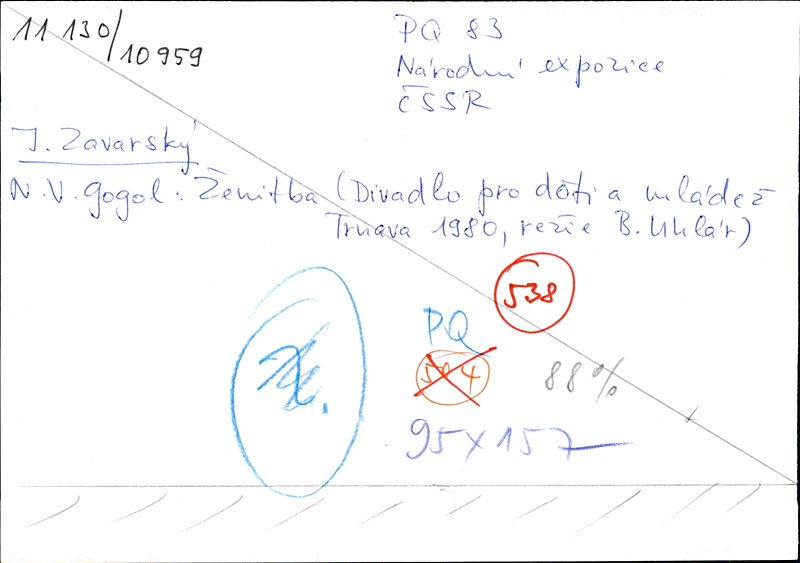 11 130/10 959
PQ 83
Národní expozice
ČSSR
J. Zavarský
N. V. Gogol: Ženitba (Divadlo pro děti a mládež
Trnava 1980, režie B. Uhlár)
538
PQ
88%
95x157